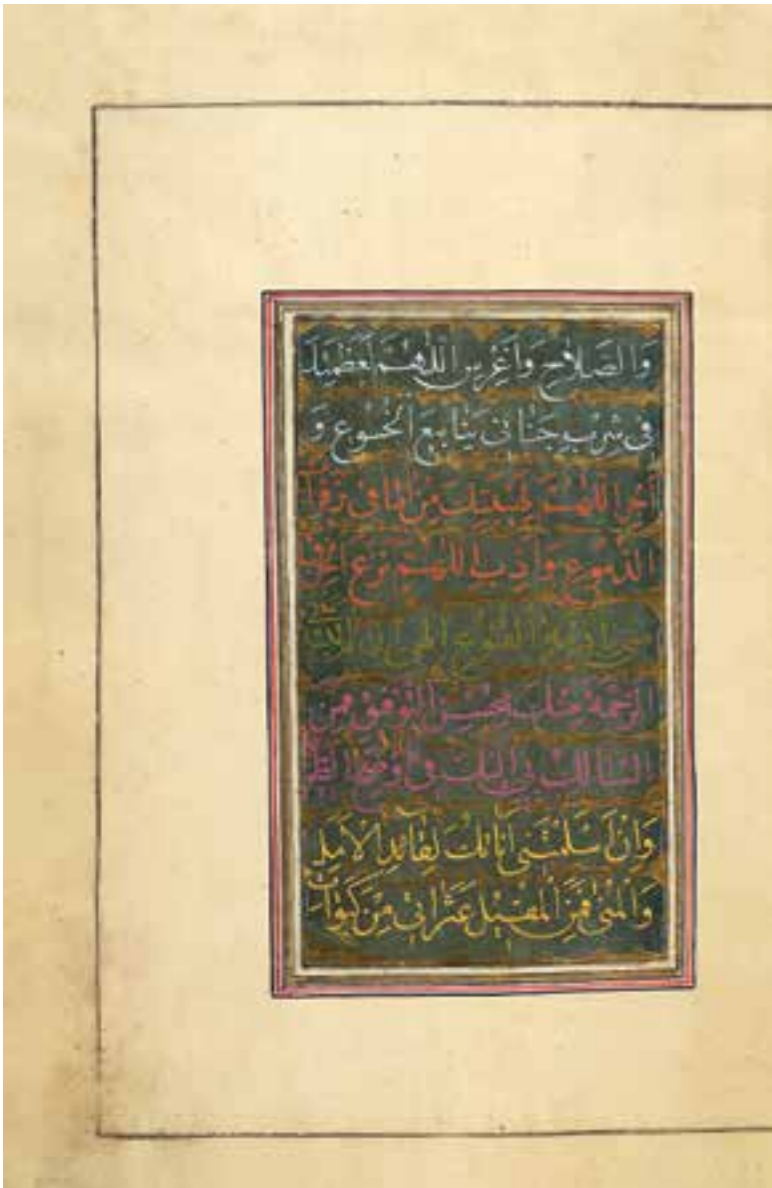 وَالصَّلَاحِ وَاَغْرِسِ اللّٰهُمَّ لِعَظَمَتِكَ
فِى شِرْبِ جَنَانِى يَنَابِيعَ الْخُشُوعِ وَ
اَجْرِ اللّٰهُمَّ لِهَيْبَتِكَ مِنْ اٰمَاقِى زَفَرَاتِ
الدُّمُوعِ وَاَدِّبِ اللّٰهُمَّ نَزَقَ الْخُرْقِ
مِنِّى بِاَزِمَّةِ الْقُنُوعِ اِلٰهِى اِنْ لَمْ
الرَّحْمَةُ مِنْكَ بِحُسْنِ التَّوْفِيقِ فَمَنِ
السَّالِكُ بِى اِلَيْكَ فِى وَاضِحِ الطَّرِيقِ
وَاِنْ اَسْلَمَتْنِى اَنَاتُكَ لِقَائِدِ الْاَمَلِ
وَالْمُنٰى فَمَنِ الْمُقِيلُ عَثَرَاتِى مِنْ كَبَوَاتِ